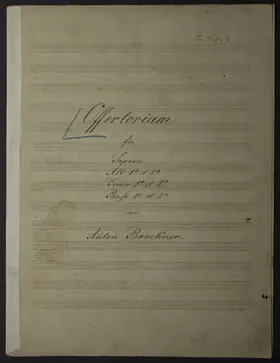 Offertorium
für
Sopran
Alt 1º et 2º
Tenor 1º et 2º
Bass 1º et 2º
von
Anton Bruckner.